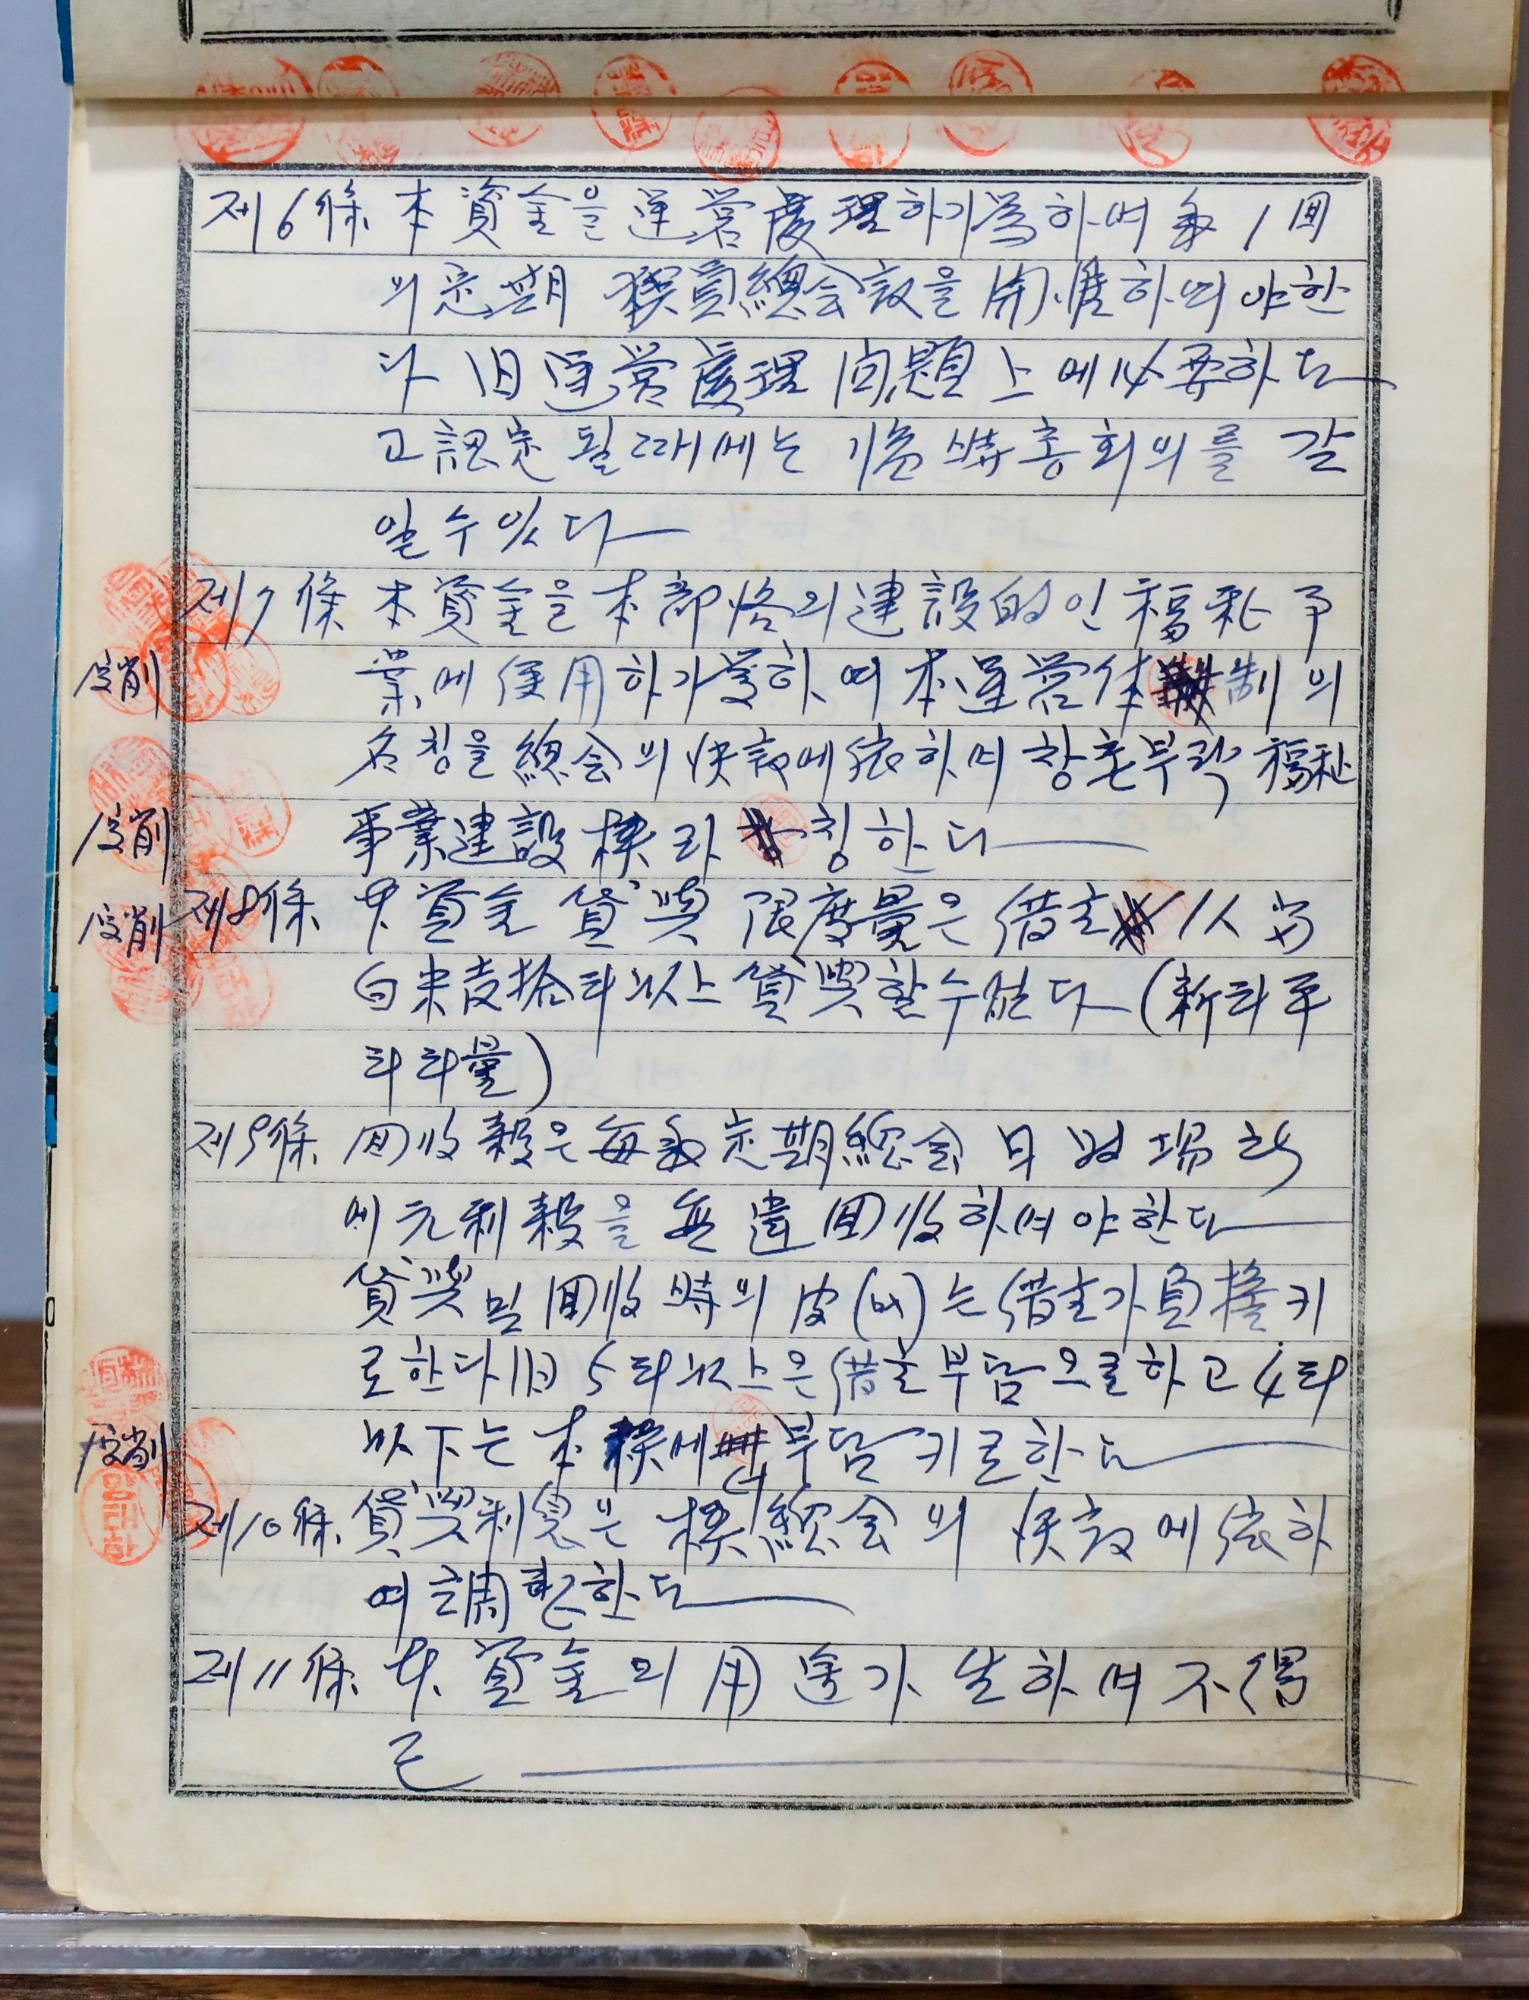 제6條 本資金을 運營處理하기爲하여 年 1回
의 定期 契員總会議을 開催하여야한
다 但 運營處理 問題上에 必要하다
고 認定될때에는 臨時총회의를 갖
일수있다
제7條 本資金을 本部落의 建設的인 福祉事
業에 使用하기爲하여 本運營体制의
名칭을 總会의 决議에 依하여 창촌부락 福祉
事業建設契라 칭한다
제8條 本資金 貸與 限度量은 借主 1人當
白米壹拾叺以上 貸與할수없다 (新叺
叺量)
제9條 回收穀은 每年定期總会日 場所
에 元利穀을 無違回收하여야한다
貸與 및 回收時의 皮(叺)는 借主가 負擔키
로한다 但 5叺以上은 借主부담으로하고 4叺
以下는 本契에서 부담키로한다
제10條 貸與利息은 契總会의 决議에 依하
여 調定한다
제11條 本資金의 用途가 生하여 不得
已
壱字削